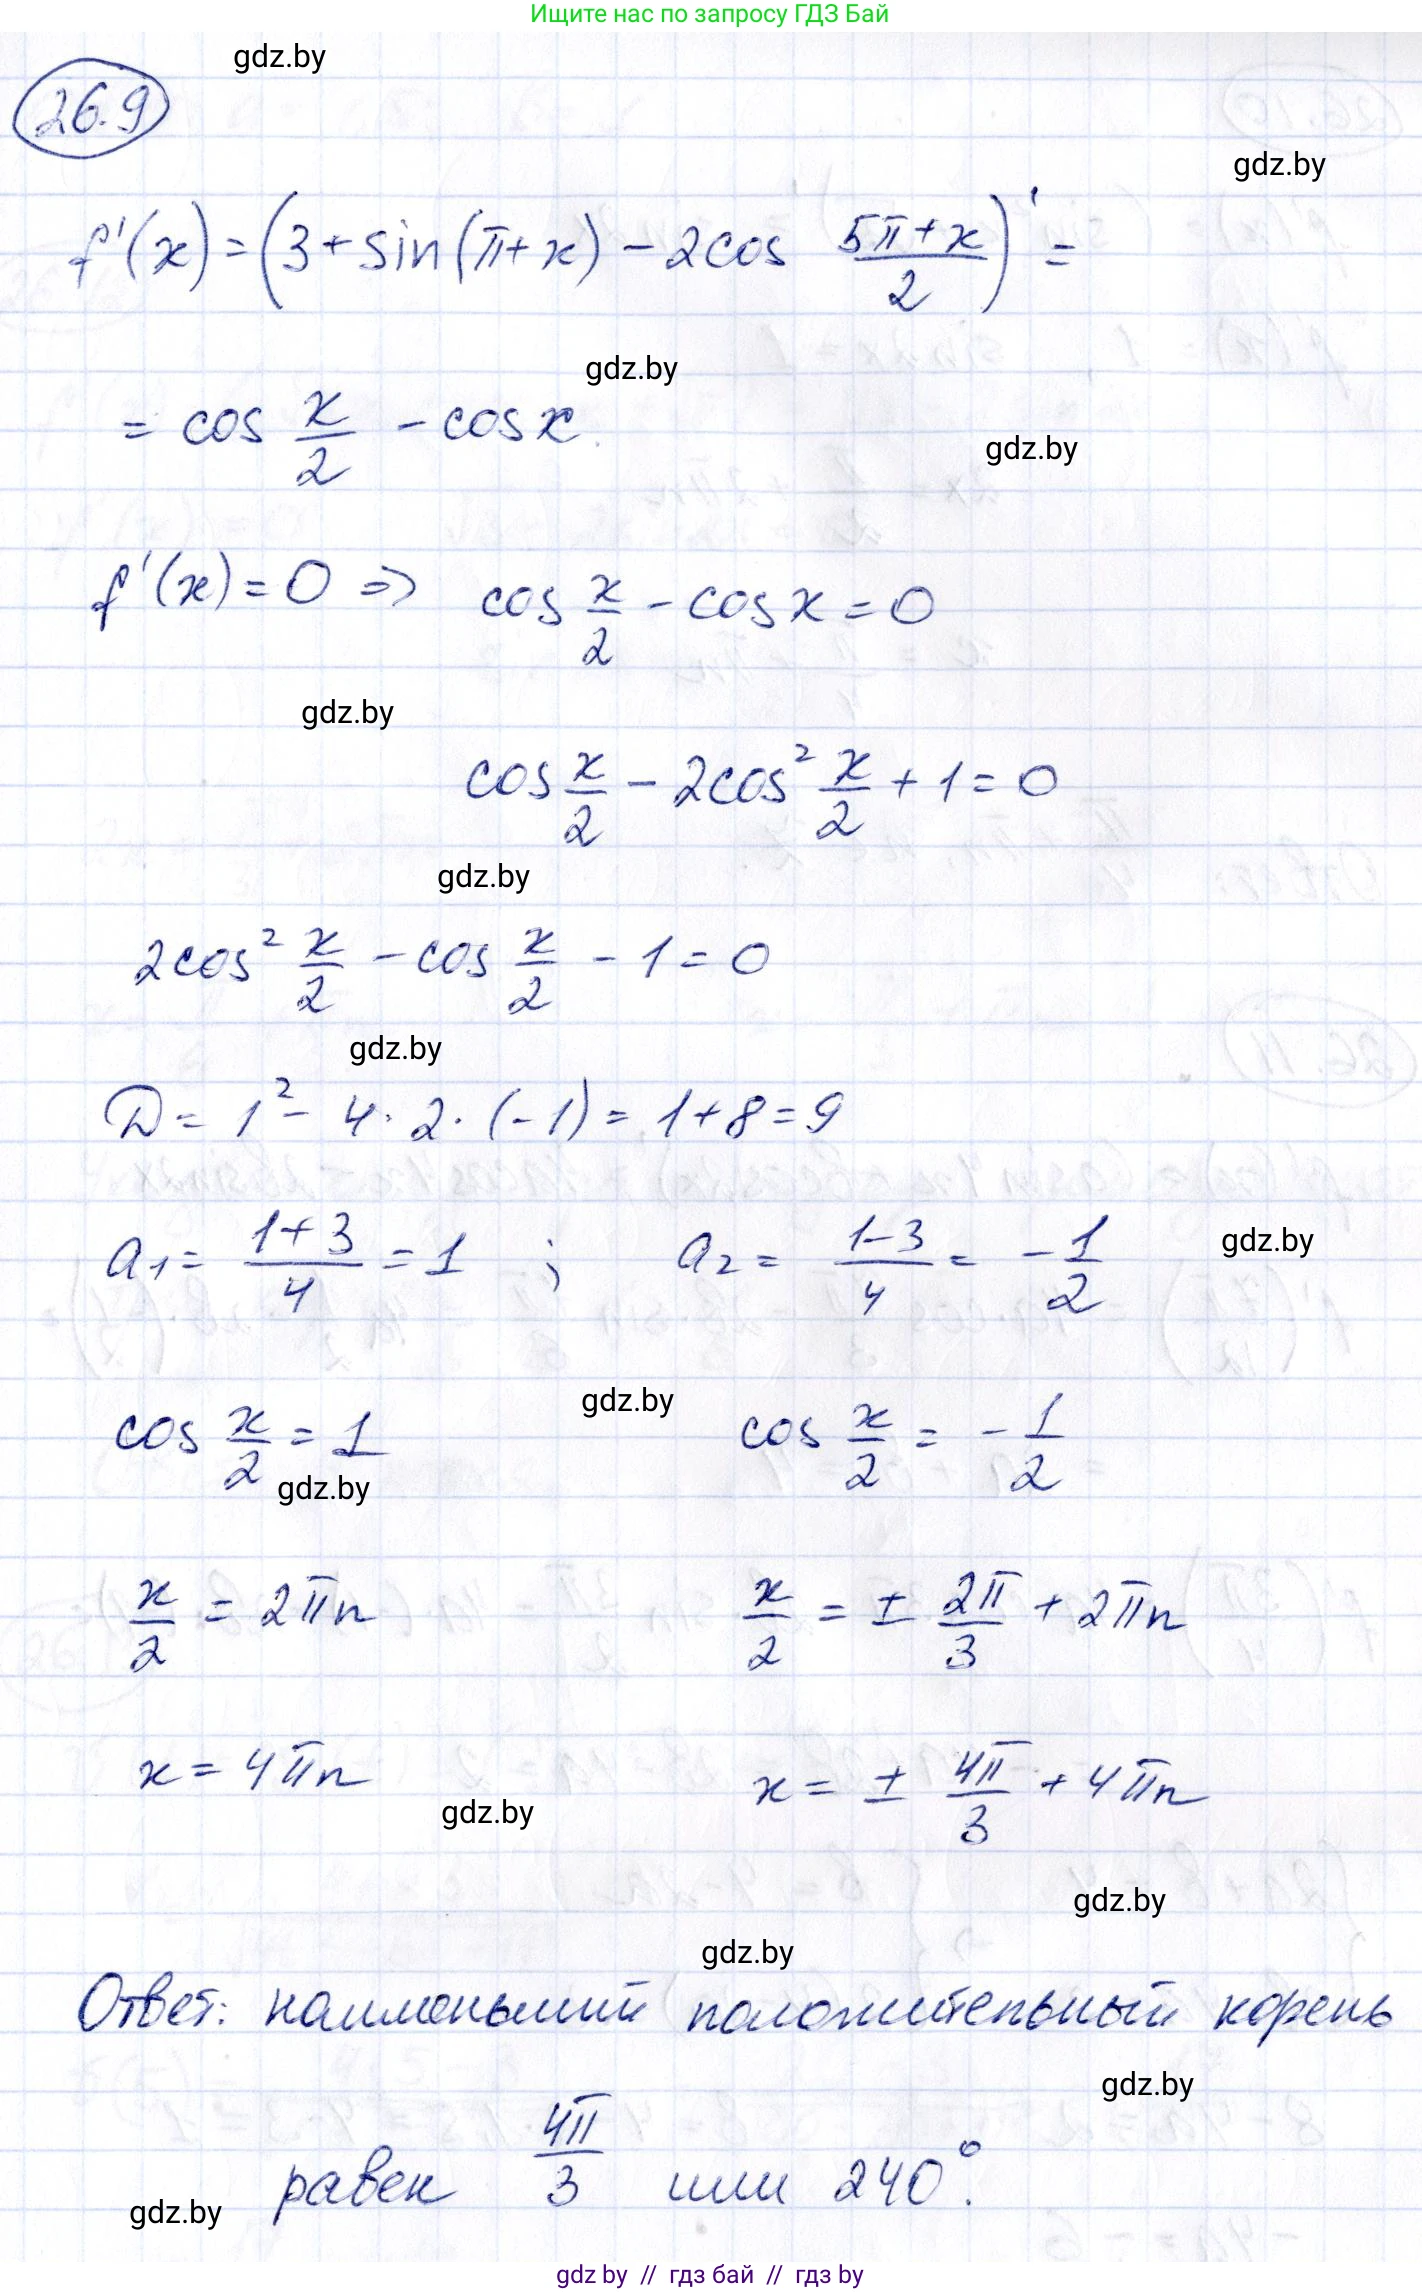 Ищите нас по запросу ГДЗ Бай
gdz.by
26.9
gdz.by
f'(x) = (3 + sin(π + x) - 2cos (5π + x)/2)' =
gdz.by
= cos x/2 - cos x.
gdz.by
f'(x) = 0 => cos x/2 - cos x = 0
gdz.by
cos x/2 - 2cos² x/2 + 1 = 0
gdz.by
2cos² x/2 - cos x/2 - 1 = 0
gdz.by
D = 1² - 4 · 2 · (-1) = 1 + 8 = 9
a₁ = (1+3)/4 = 1 ; a₂ = (1-3)/4 = -1/2
gdz.by
gdz.by
cos x/2 = 1 cos x/2 = -1/2
gdz.by
x/2 = 2πn x/2 = ± 2π/3 + 2πn
x = 4πn x = ± 4π/3 + 4πn
gdz.by
gdz.by
gdz.by
Ответ: наименьший положительный корень
gdz.by
равен 4π/3 или 240°.
gdz.by
gdz by // гдз бай // гдз by